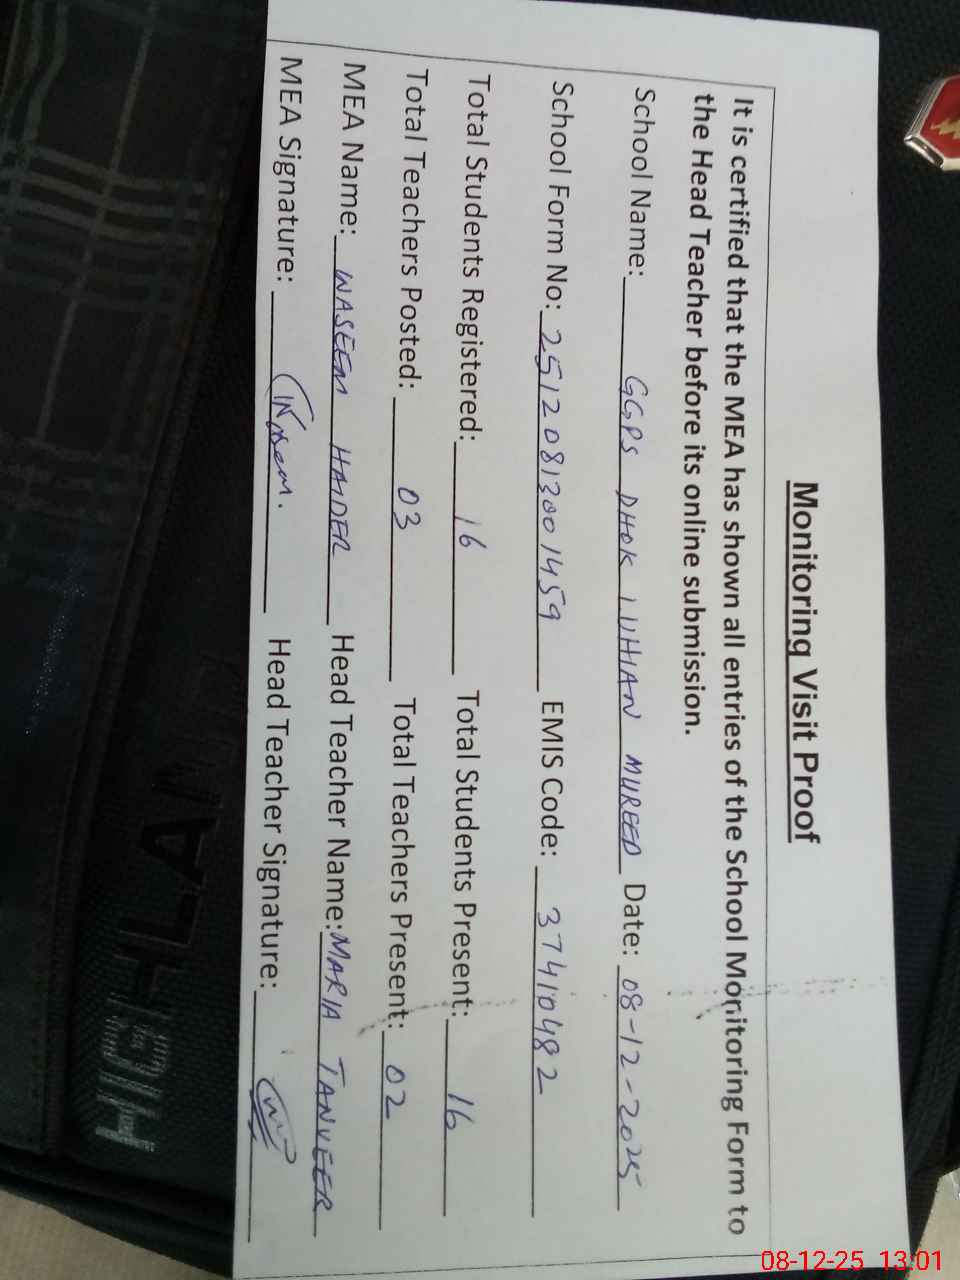 Monitoring Visit Proof
It is certified that the MEA has shown all entries of the School Monitoring Form to
the Head Teacher before its online submission.
School Name: GGPS DHOK LUHIAN MUREED Date: 08-12-2025
School Form No: 25120813001459 EMIS Code: 37410482
Total Students Registered: 16 Total Students Present: 16
Total Teachers Posted: 03 Total Teachers Present: 02
MEA Name: WASEEM HAIDER Head Teacher Name: MARIA TANVEER
MEA Signature: Head Teacher Signature:
HIGHLAND
08-12-25 13:01